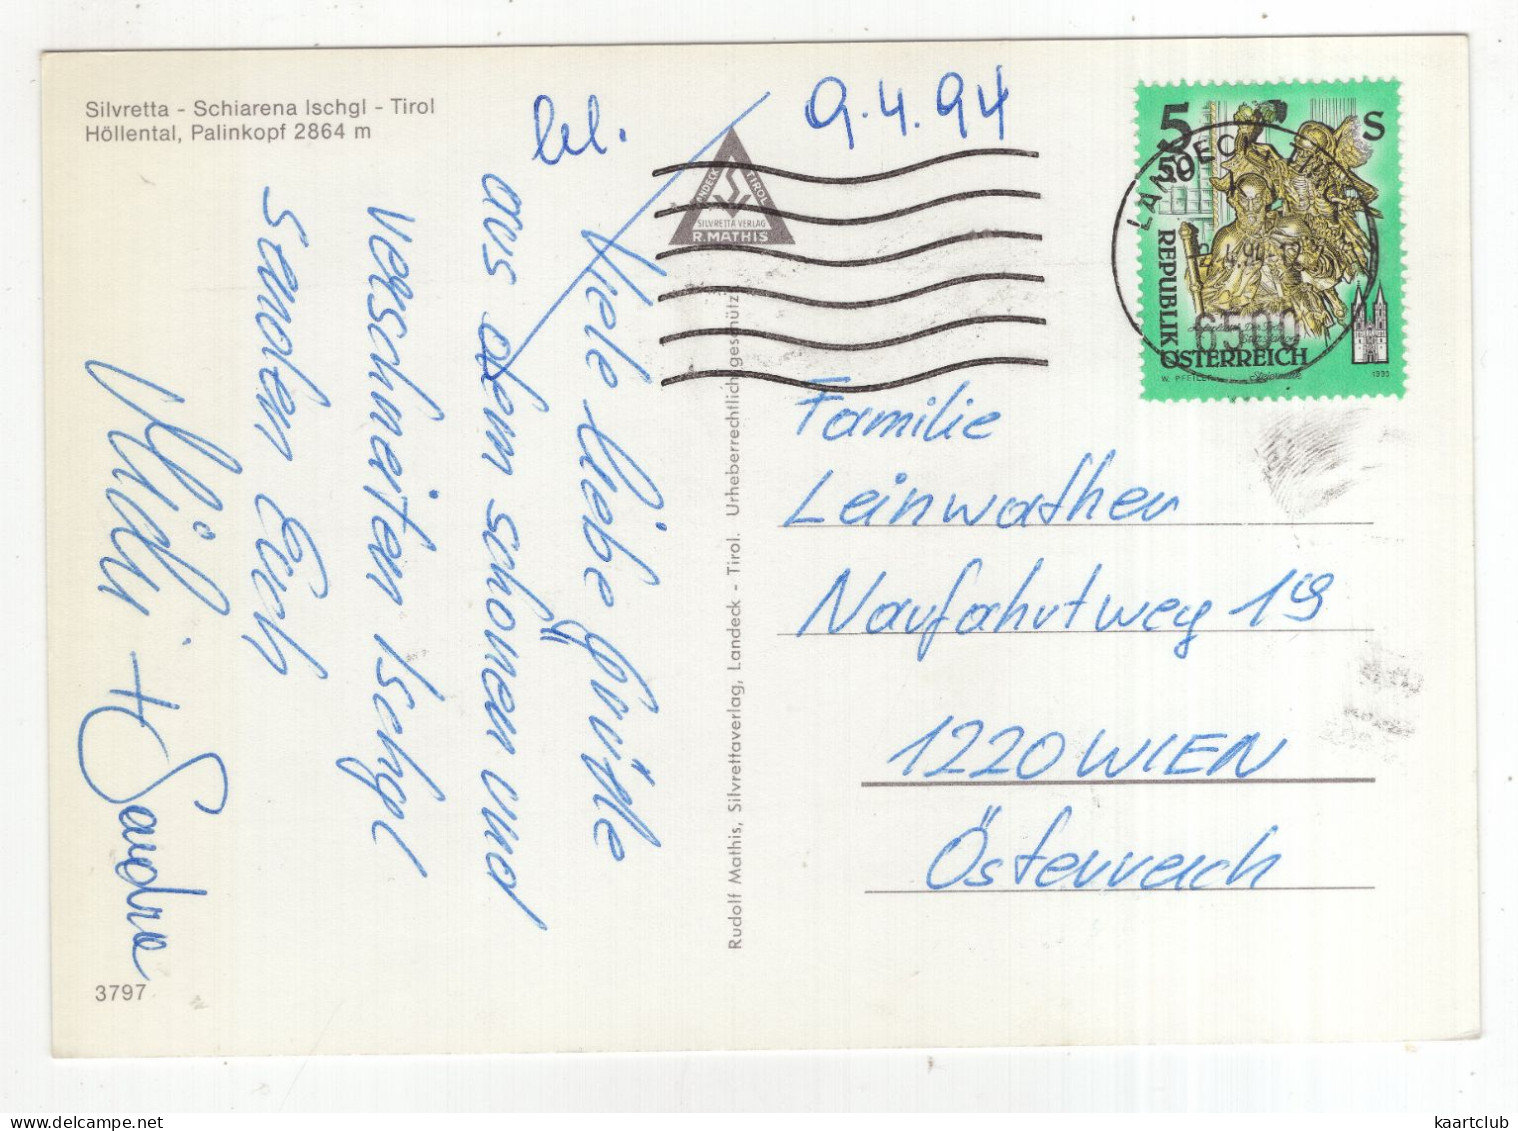 Silvretta - Schiarena Ischgl - Tirol
Höllental, Palinkopf 2864 m
9.4.94
LANDECK TIROL
SILVRETTA VERLAG
R. MATHIS
5 S
50
REPUBLIK
ÖSTERREICH
W. PFEILER
1993
LANDECK
6500
Viele liebe Grüße
aus dem schönen und
verschneiten Ischgl
senden Euch
+ Sandra
Rudolf Mathis, Silvrettaverlag, Landeck - Tirol. Urheberrechtlich geschützt
Familie
Leinwather
Naufahrtweg 19
1220 WIEN
Österreich
3797
kaartclub